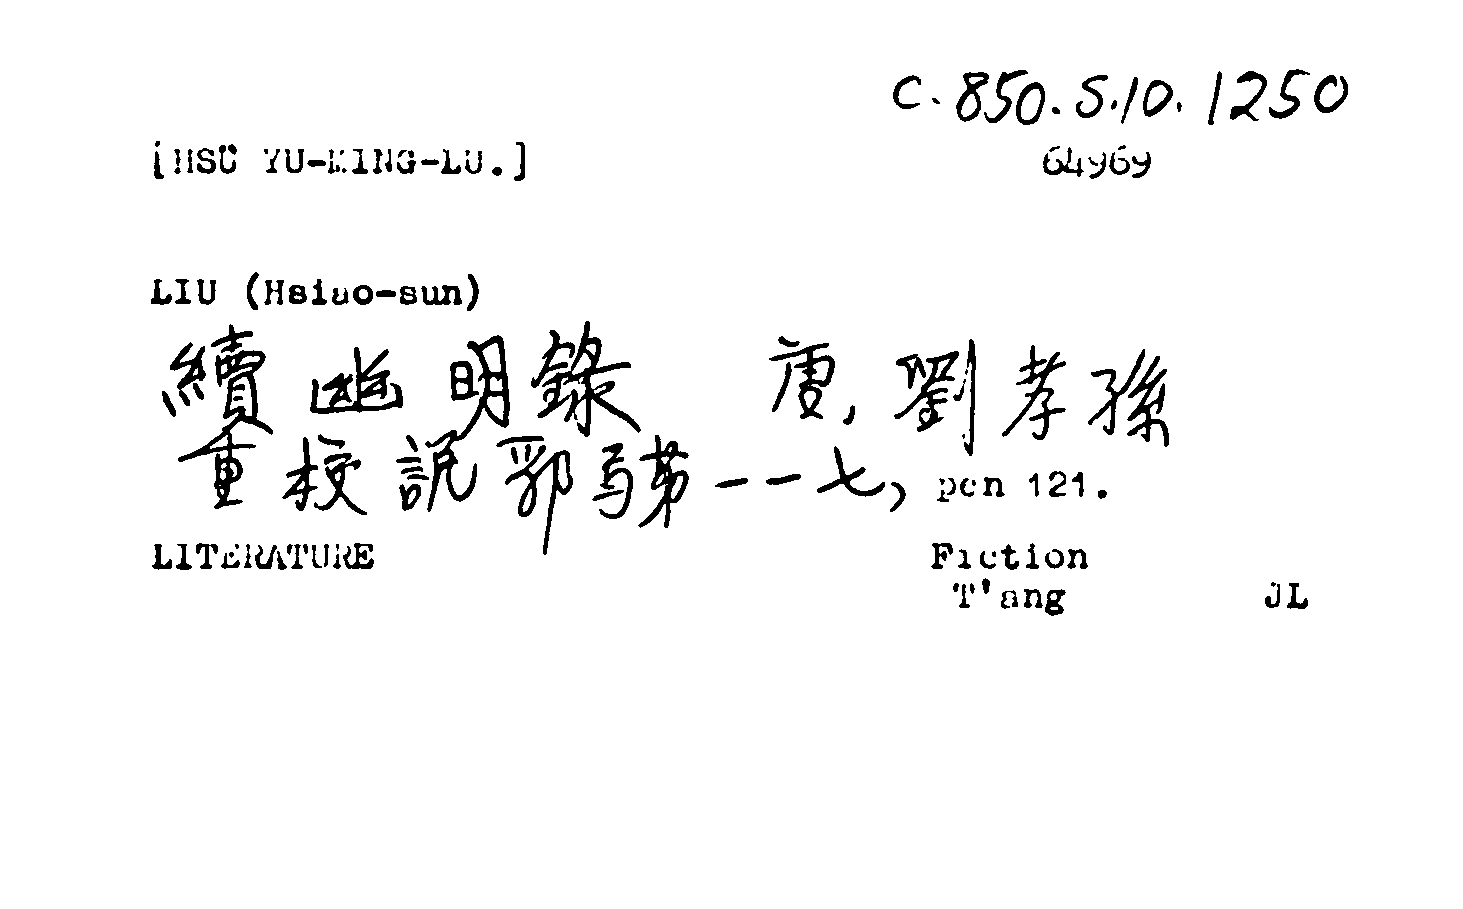 C.850.S.10.1250
[HSU YU-MING-LU.]
64969
LIU (Hsiao-sun)
續幽明錄 唐, 劉孝孫
重校說郛弓第一一七, pen 121.
LITERATURE Fiction
T'ang JL